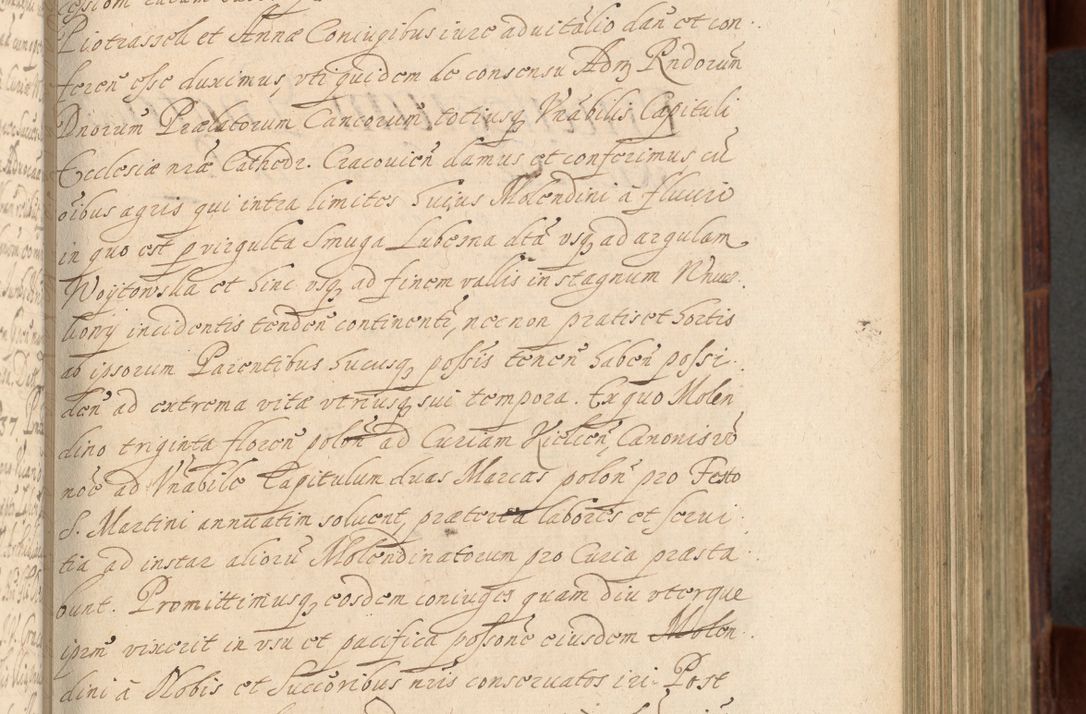 Piotrassek et Annæ Coniugibus iure aduitalio dan̄ et con
feren̄ esse duximus, vti quidem de consensu Adm̄ Rndorum̄
Dnorum̄ Prælatorum Can̄corum totiusq̨ Vnābilis Capituli
Ecclesiæ nr̄æ Cathedr. Cracovien̄ damus et conferimus cū
oībus agris qui intra limites huius Molendini à fluuio
in quo est virgulta Smuga vsq̨ ad argulam
Woytowska et hinc vsq̨ ad finem vallis in stagnum
incidentis tenden̄ continentr̄, necnon pratis et hortis
ab ipsorum Parentibus hucusq̨ possis tenen̄ haben̄ possi
den̄ ad extrema vitæ vtriusq̨ sui tempora. Ex quo Molen
dino triginta floren̄ polon̄ ad Curiam Kielien̄, Canonis rō
nōe ad Vnābile Capitulum duas Marcas polon̄ pro Festo
S. Martini annuatim soluent, præterea labores et serui
tia ad instar aliorū Molendinatorum pro Curia præsta
bunt. Promittimusq̨ eosdem coniuges quam diu vterque
ipsrm̄ vixerit in vsu et pacifica possōne eiusdem Molen
dini à Nobis et Succōribus nris conseruatos iri. Post